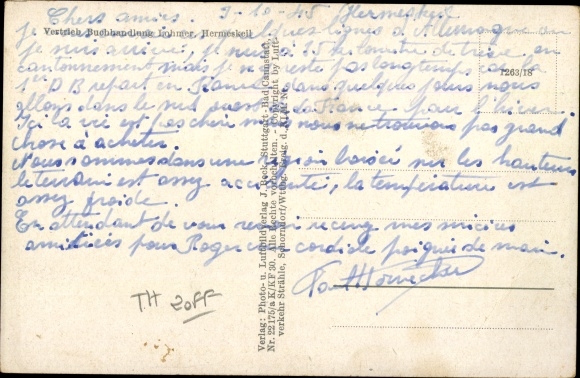 Chers amies. 9-10-45 Hermeskeil
Vertrieb Buchhandlung Lohmer, Hermeskeil
je quelques lignes d'Allemagne
je suis arrivé, je suis à 35 k de trève en
cantonnement mais je ne reste pas longtemps car la
1263/18
1ère D B repart en France dans quelques jours nous
allons dans le sud ouest de la France pour l'hiver
Ici la vie est pas cher mais nous ne trouvons pas grand
chose à acheter.
Nous sommes dans une région boisée sur les hauteurs
le terrain est assez accidenté, la température est
assez froide.
En attendant de vous revoir recevez mes
amitiées pour Roger une cordiale poignée de main.
TH 20FF
Verlag: Photo- u. Luftbildverlag J. Beck, Stuttgart-Bad Cannstatt.
Nr. 22175/a K/KF 30. Alle Rechte vorbehalten. - Copyright by Luft-
verkehr Strähle, Schorndorf/Wttbg.